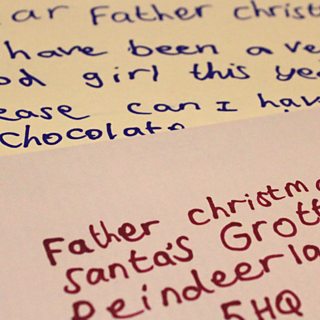 ar Father christ
have been a ve
od girl this ye
ease can I hav
chocolate
Father christm
Santa's Grott
Reindeerla
5HQ